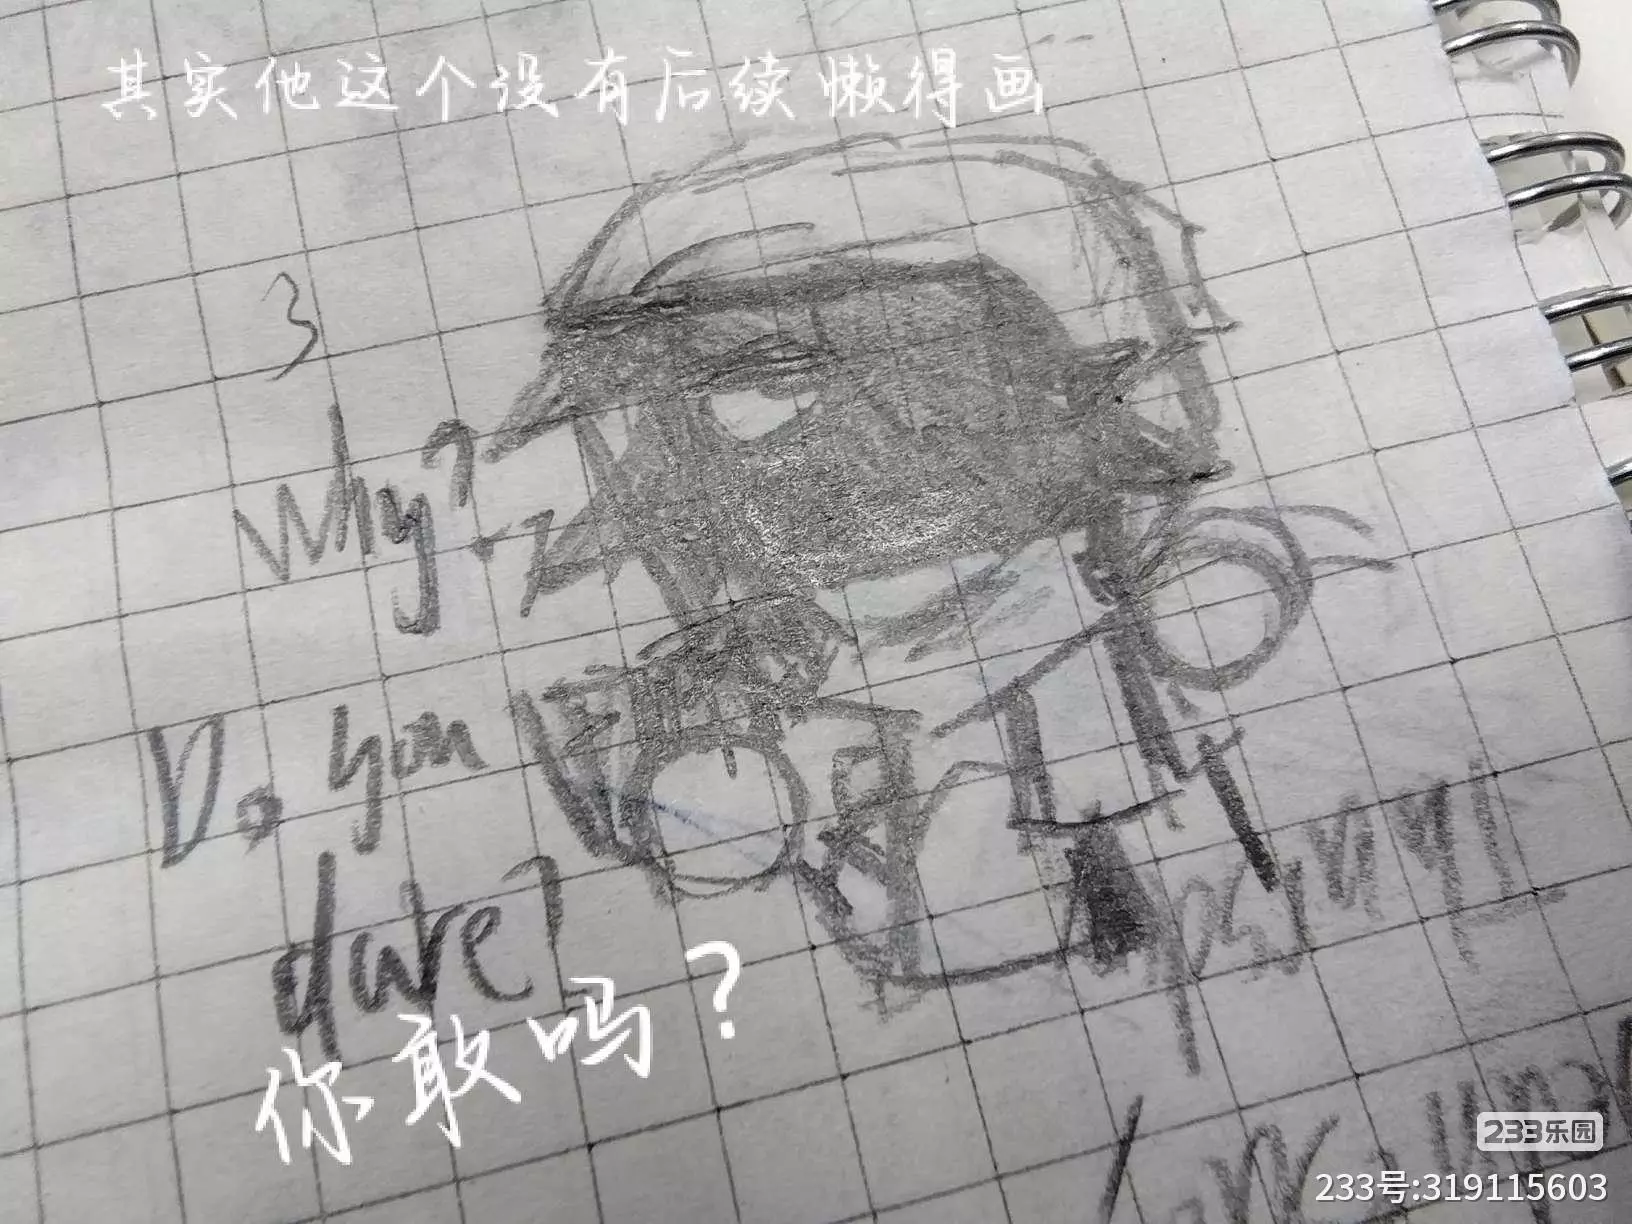 其实他这个没有后续懒得画
3
Why?
Do you
dare?
你敢吗？
233乐园
233号:319115603